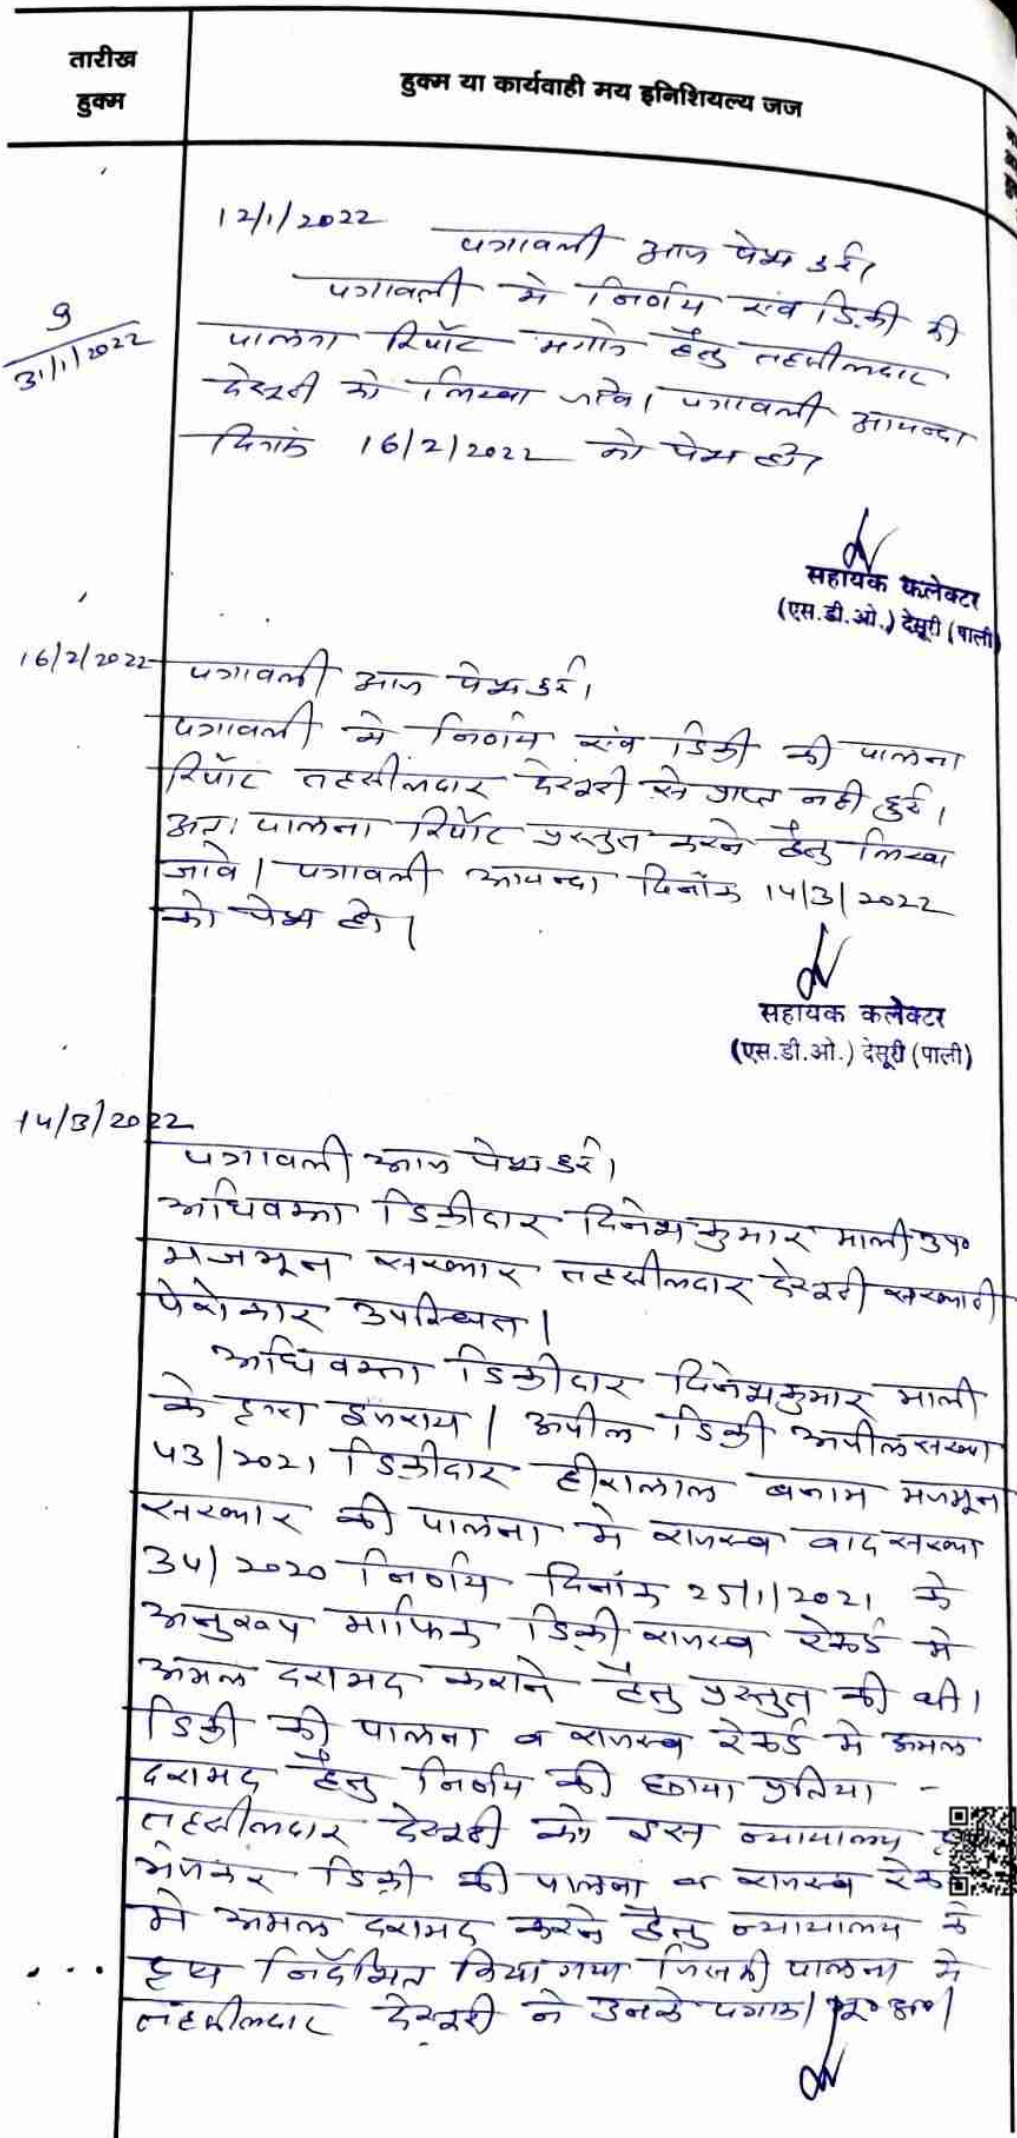 तारीख
हुक्म
हुक्म या कार्यवाही मय इनिशियल्य जज
12/1/2022
पत्रावली आज पेश हुई।
9
31/1/2022
पत्रावली मे निर्णय एंव डिक्री की
पालना रिर्पोट मगाने हेतु तहसीलदार
देसूरी को लिखा जावे। पत्रावली आयन्दा
दिनांक 16/2/2022 को पेश हो।
सहायक कलेक्टर
(एस.डी.ओ.) देसूरी (पाली)
16/2/2022
पत्रावली आज पेश हुई।
पत्रावली मे निर्णय एंव डिक्री की पालना
रिर्पोट तहसीलदार देसूरी से प्राप्त नही हुई।
अतः पालना रिर्पोट प्रस्तुत करने हेतु लिखा
जावे। पत्रावली आयन्दा दिनाँक 14/3/2022
को पेश हो।
सहायक कलेक्टर
(एस.डी.ओ.) देसूरी (पाली)
14/3/2022
पत्रावली आज पेश हुई।
अधिवक्ता डिक्रीदार दिनेशकुमार माली उप०
मजमून सरकार तहसीलदार देसूरी सरकारी
पेरोकार उपस्थित।
अधिवक्ता डिक्रीदार दिनेशकुमार माली
के द्वारा इजराय। अपील डिक्री अपील सख्या
43/2021 डिक्रीदार हीरालाल बनाम मजमून
सरकार की पालना मे राजस्व वाद सख्या
34/2020 निर्णय दिनांक 25/1/2021 के
अनुरूप माफिक डिक्री राजस्व रेकर्ड मे
अमल दरामद कराने हेतु प्रस्तुत की थी।
डिक्री की पालना व राजस्व रेकर्ड मे अमल
दरामद हेतु निर्णय की छाया प्रतिया -
तहसीलदार देसूरी को इस न्यायालय
भेजकर डिक्री की पालना व राजस्व
मे अमल दरामद करने हेतु न्यायालय के
द्वारा निर्देशित किया गया जिसकी पालना मे
तहसीलदार देसूरी ने उनके पत्रांक/भू०अ०/